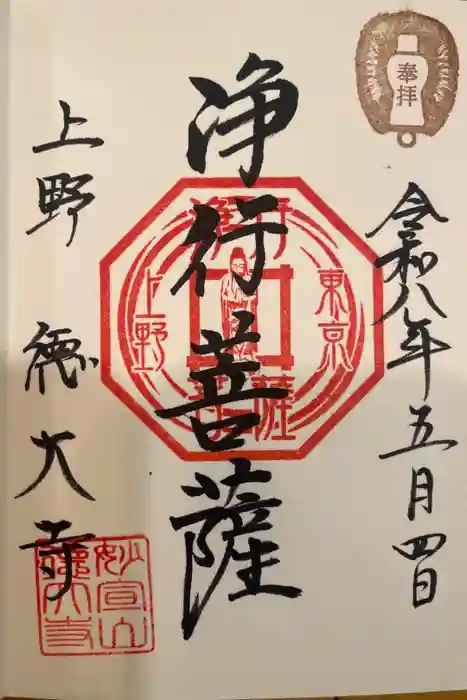 奉拝
令和八年五月四日
浄行菩薩
浄行
東京
上野
菩薩
上野 徳大寺
妙宣山
徳大寺